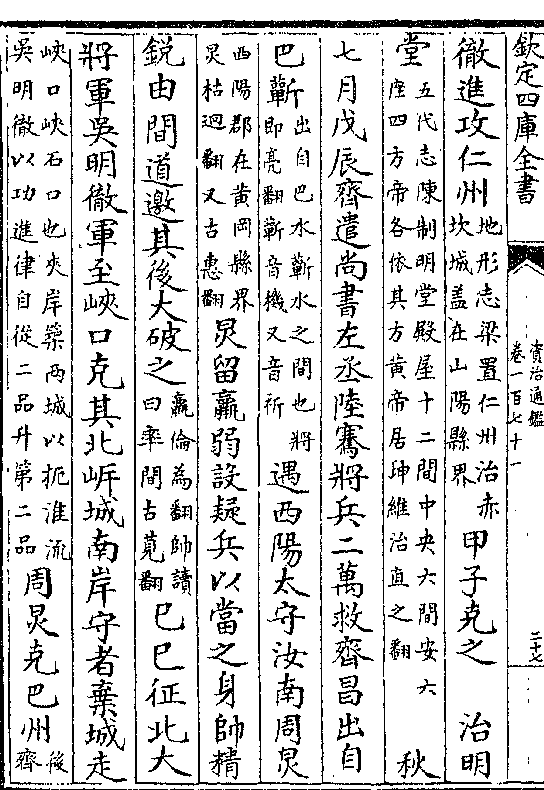 欽定四庫全書
資治通鑑
卷一百七十一
二十七
徹進攻仁州地形志梁置仁州治赤坎城盖在山陽縣界甲子克之 治明
堂五代志陳制明堂殿屋十二間中央六間安六座四方帝各依其方黄帝居坤維治直之翻 秋
七月戊辰齊遣尚書左丞陸騫將兵二萬救齊昌出自
巴蘄出自巴水蘄水之間也將即亮翻蘄音機又音祈遇西陽太守汝南周炅
西陽郡在黄岡縣界炅枯迥翻又古惠翻炅留羸弱設疑兵以當之身帥精
鋭由間道邀其後大破之羸倫為翻帥讀曰率間古莧翻己巳征北大
將軍吳明徹軍至峽口克其北岸城南岸守者棄城走
峽口峽石口也夾岸築兩城以扼淮流吳明徹以功進律自從二品升第二品周炅克巴州後齊